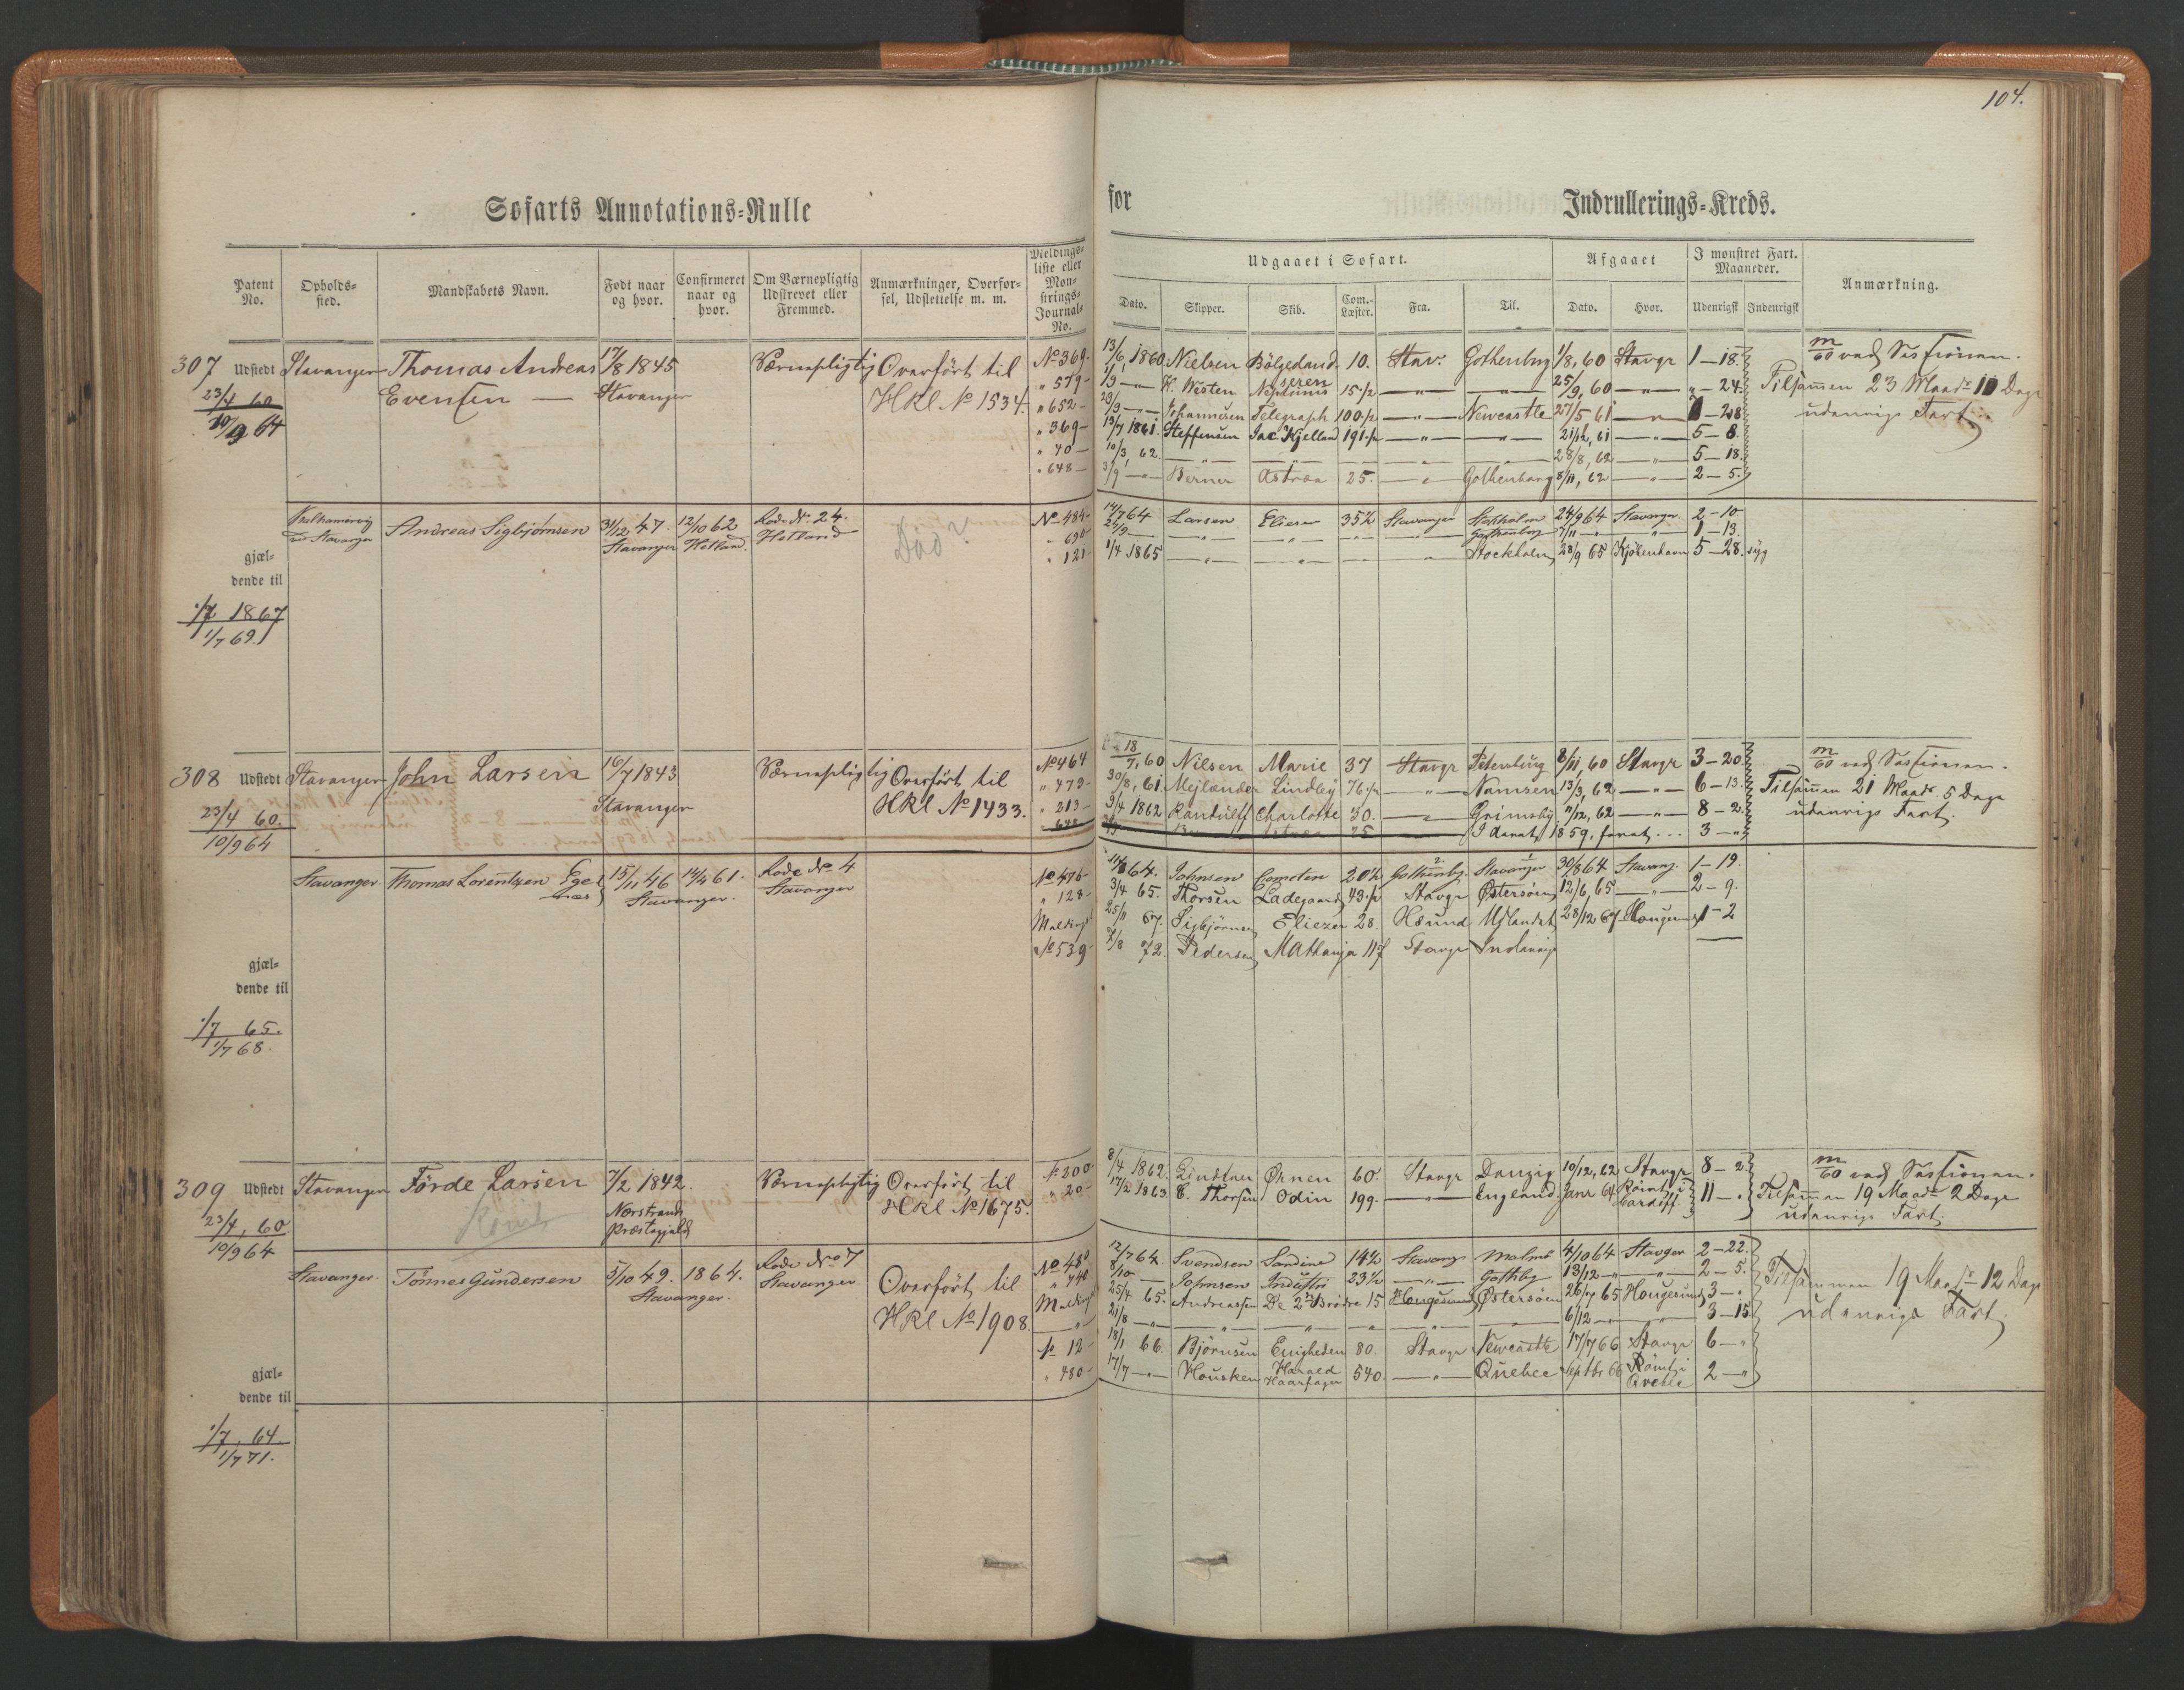 104.
Søfarts Annotations-Rulle
for Indrullerings-Kreds.
Patent No. Opholds-sted. Mandskabets Navn. Født naar og hvor. Confirmeret naar og hvor. Om Værnepligtig Udskrevet eller Fremmed. Anmærkninger, Overførsel, Udslettelse m. m. Meldings-liste eller Mønstrings-Journal-No.
Udgaaet i Søfart. Afgaaet I mønstret Fart. Maaneder. Anmærkning.
Dato. Skipper. Skib. Com.-Læster. Fra. Til. Dato. Hvor. Udenrigsk Indenrigsk
307 Udstedt Stavanger Thomas Andreas 17/8 1845 Værnepligtig Overført til No 369
23/4 60 Eventsen Stavanger HKl No 1534. " 579
10/9 64 " 652
" 369
" 40
" 648
13/6, 1860 Nielsen Bölgedand 10. Stav. Gothenbug 1/8, 60 Stavgr 1-18
H. Westen Neptunus 15 1/2 25/9, 60 " " - 24.
29/9 Johannesen Telegraph 100 1/2 Newcastle 27/5 61
13/7 1861. Steffensen Jac Kjelland 191 1/2 21/12, 61 5-8.
10/3, 62 28/8, 62 5-18.
3/9 Berner Astræa 25. Gothenborg 8/11, 62 2-5.
m/60 ved Sessionen.
Tilsammen 23 Maadr 10 Dage
udenrigs Fart.
Stavanger Andreas Sigbjørnsen 31/12 47. 12/10 62 Rode No. 24. Død? No 484
Stavanger Hetland. Hetland " 690
" 121
14/7 64 Larsen Elieser 35 1/2 Stavanger Stokholm 24/9 64 Stavangr. 2-10
Gothenborg 7/11 1-13.
1/4 1865 Stockholm 28/9 65 Kjöbenhavn 5-28. syg
gjæl-
dende til
1/7 1867
1/7 69.
308 Udstedt Stavanger John Larsen 16/7 1843 Værnepligtig Overført til No 464
23/4 60. Stavanger HKl No 1433. " 479
10/9 64 " 213
648
18/7, 60 Nilsen Marie 37 Stavgr Petersburg 8/11, 60 Stavgr 3-20
30/8, 61. Mejlænder Lindley 76 1/2 Namsen 13/3, 62 6-13.
3/4 1862 Randulff Charlotte 30. Grimsby 7/12, 62 8-2.
1859, 3-"
m/60 ved Sessionen.
Tilsammen 21 Maadr. 5 Dage
udenrigs Fart.
Stavanger. Thomas Lorentzen Egenæs 15/11 46 14/4 61. Rode No 4 No 476
Stavanger. Stavanger " 128
No 539
64. Johnsen Cometen 20 1/2 Gothenbg. Stavanger 30/8 64 Stavang. 1-19.
3/4 65. Thorsen Ladegaard 43 1/2 Stavgr Østersöen 12/6, 65 2-9.
25/11 67. Sigbjörnsen Eliezer 28. Hsund. Udlandet 28/12 67 Haugesund 1-2
7/8 72. Pedersen Mathanja 117 Stavgr Indenrigs
gjæl-
dende til
1/7 65.
1/7 68.
309 Udstedt Stavanger Förde Larsen 7/2 1842. Værnepligtig Overført til No 200
23/4, 60 Römt Nærstrands HKl No 1675. " 20
10/9 64 Præstegjeld
8/4 1862. Lindtner Ørnen 60. Stavgr Danzig 10/12, 62 Stavgr 8-2.
17/2 1863. C. Thorsen Odin 199. England. Janr 64 Römt i Cardiff. 11-"
m/60 ved Sessionen.
Tilsammen 19 Maadr 2 Dage
udenrigs Fart.
Stavanger. Tönnes Gundersen 5/10 49. 1864. Rode No 7 Overført til No 480
Stavanger. Stavanger HKl No 1908. " 740
No 12
" 480
12/7 64. Svendsen Sandine 14 1/2 Stavang Malmö 4/10 64 Stavger 2-22.
8/10 Johnsen Industri 23 1/2 Gothbg 13/12 2-5.
25/4 65. Andreassen De 2de Brödre 15 Haugesund Østersöen 26/7 65 Haugesund 3-"
21/8 6/12 3-15
18/1 66. Björnsen Enigheden 80. Stavgr Newcastle 17/7 66 Stavgr 6-"
17/7 Housken Harald Haarfager 540. Quebec Septbr 66 Römt i Qvebec 2-"
Tilsammen 19 Maadr 12 Dage
udenrigs Fart.
gjæl-
dende til
1/7, 64.
1/7 71.